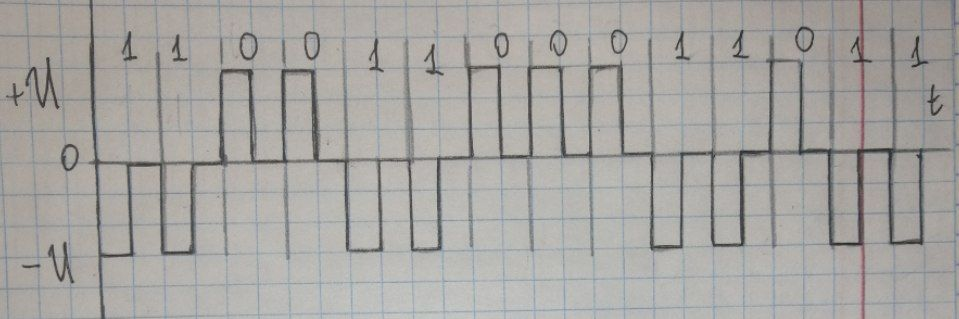 1 1 0 0 1 1 0 0 0 1 1 0 1 1
+U
t
0
-U